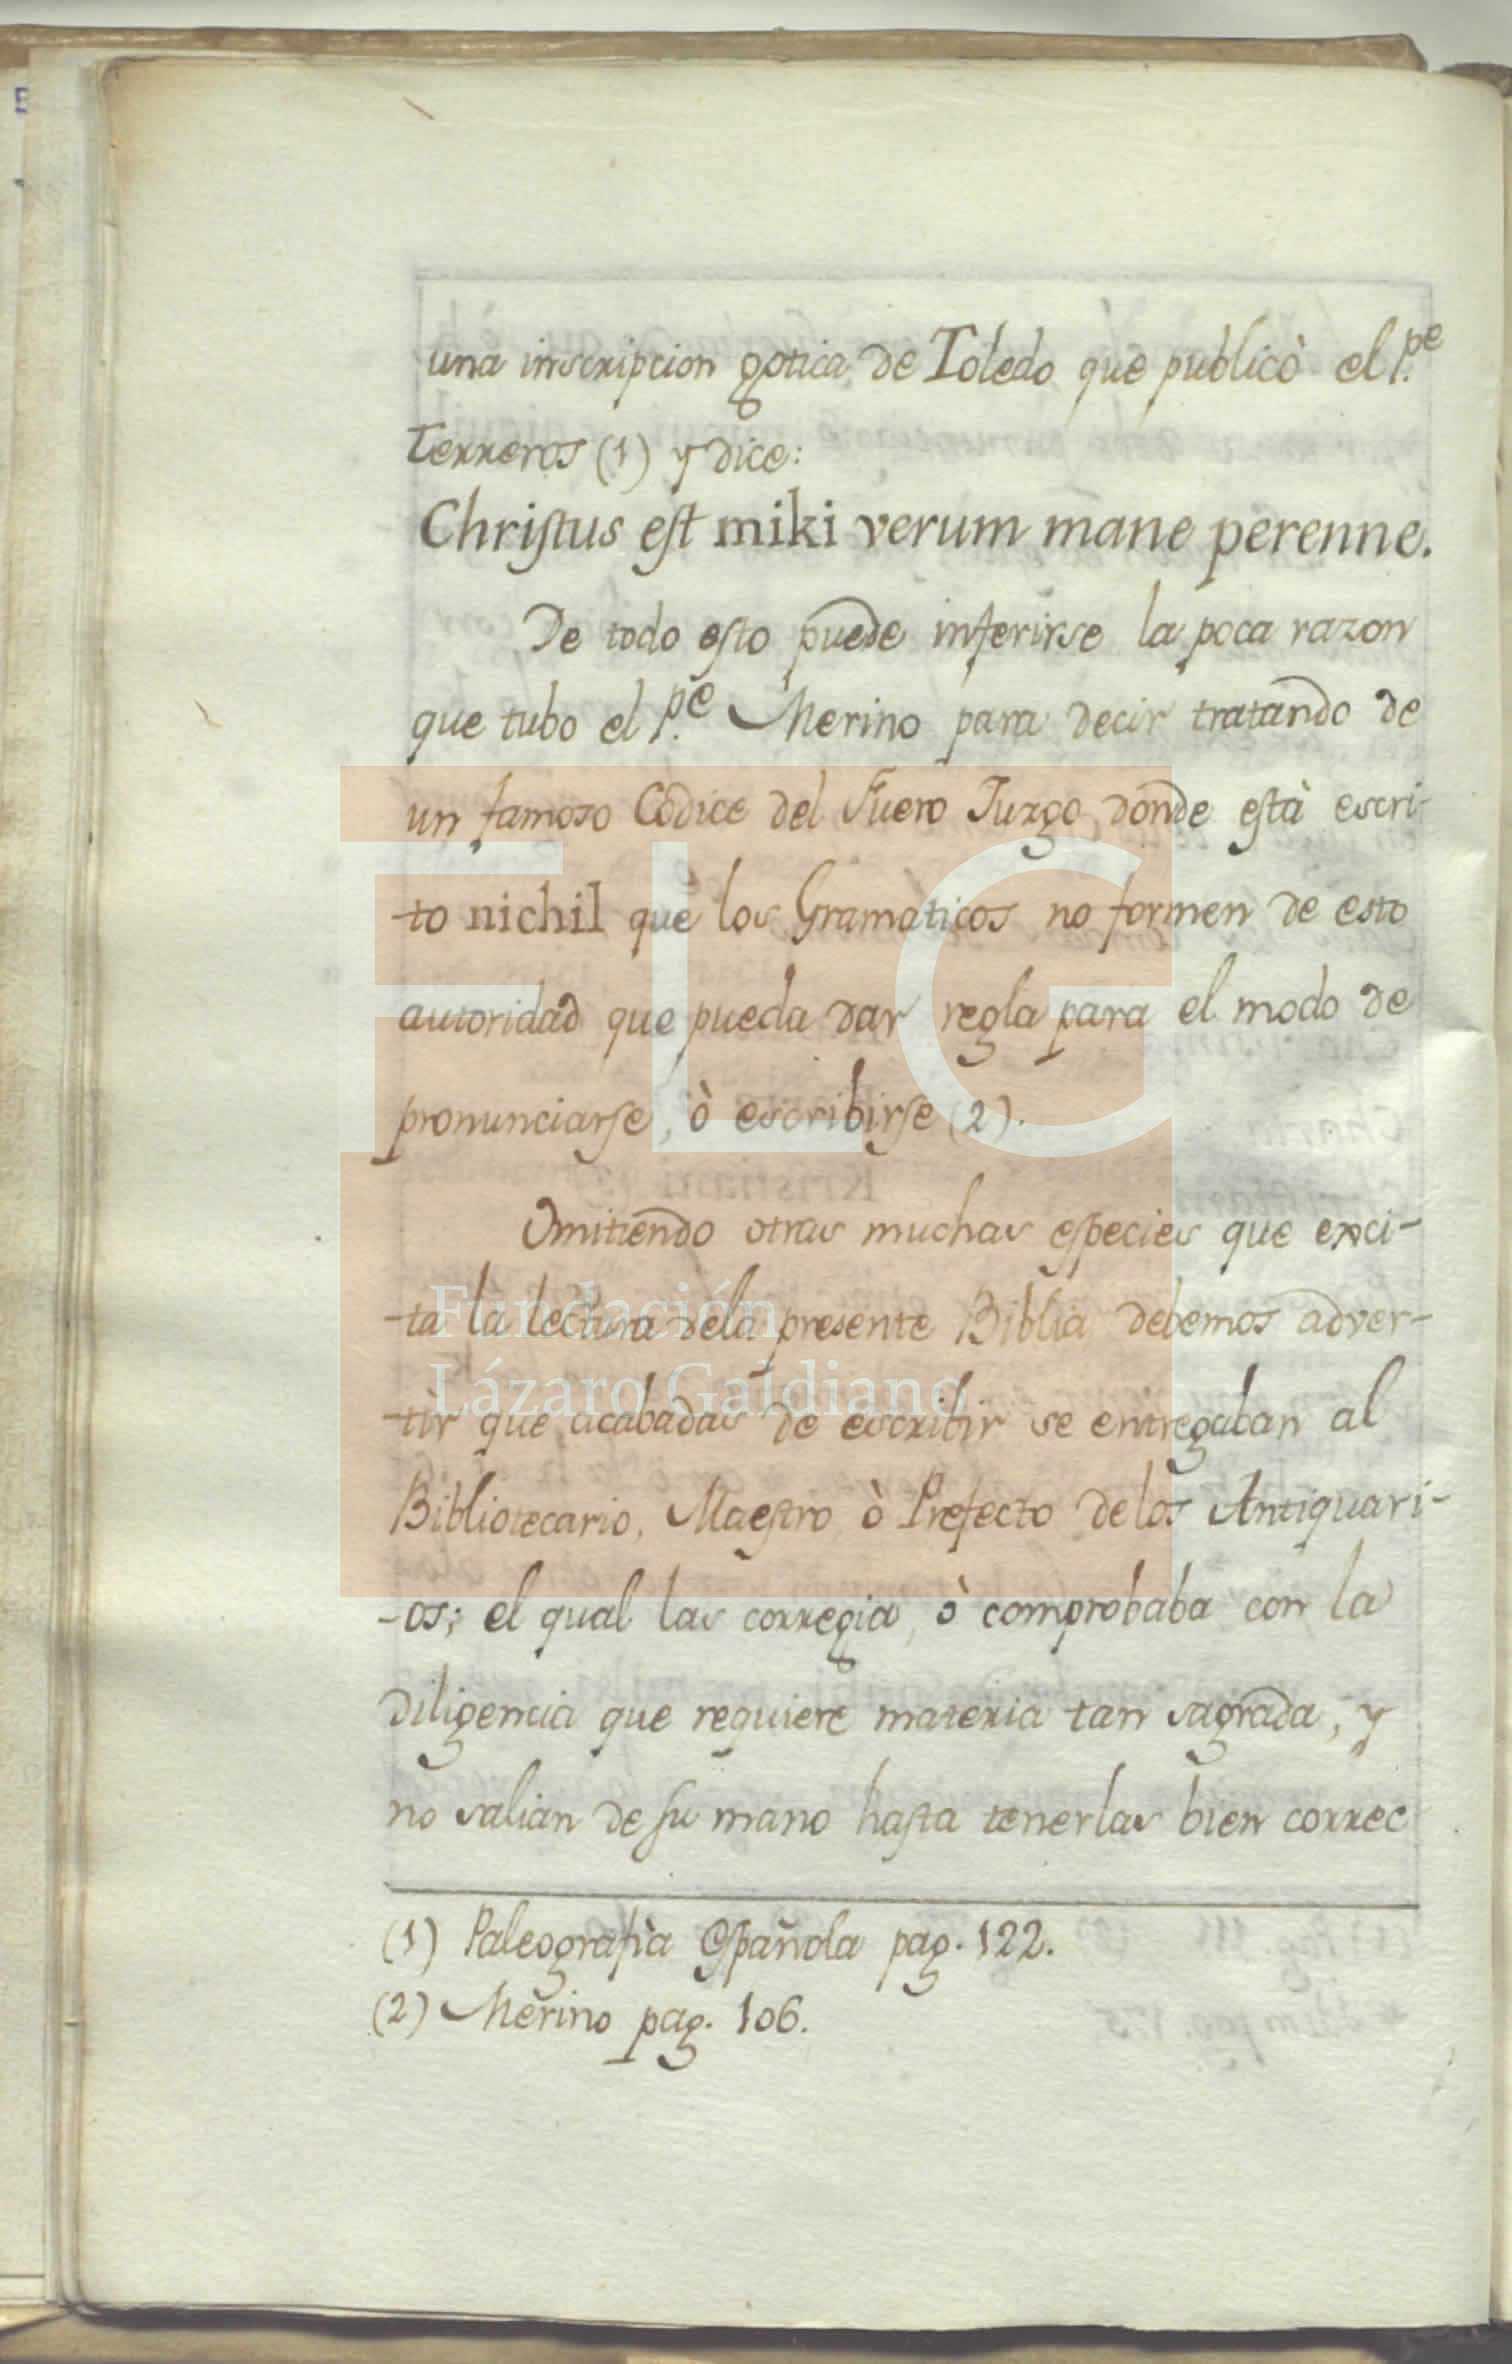 una inscripcion gotica de Toledo que publicò el P.e
Terreros (1) y dice:
Chriſtus eſt miki verum mane perenne.
De todo eſto puede inferirse la poca razon
que tubo el P.e Merino para decir tratando de
un famoso Codice del Fuero Juzgo donde eſtà escri-
-to nichil que los Gramaticos no formen de esto
autoridad que pueda dar regla para el modo de
pronunciarſe, ò escribirſe (2).
Omitiendo otras muchas eſpecies que exci-
-ta la lectura dela presente Biblia debemos adver-
-tir que acabadas de escribir se entregaban al
Bibliotecario, Maeſtro ò Prefecto delos Antiquari-
-os; el qual las corregia, ò comprobaba con la
diligencia que requiere materia tan sagrada, y
no salian de ſu mano haſta tenerlas bien correc
(1) Paleografia Eſpañola pag. 122.
(2) Merino pag. 106.
FLG
Fundación
Lázaro Galdiano